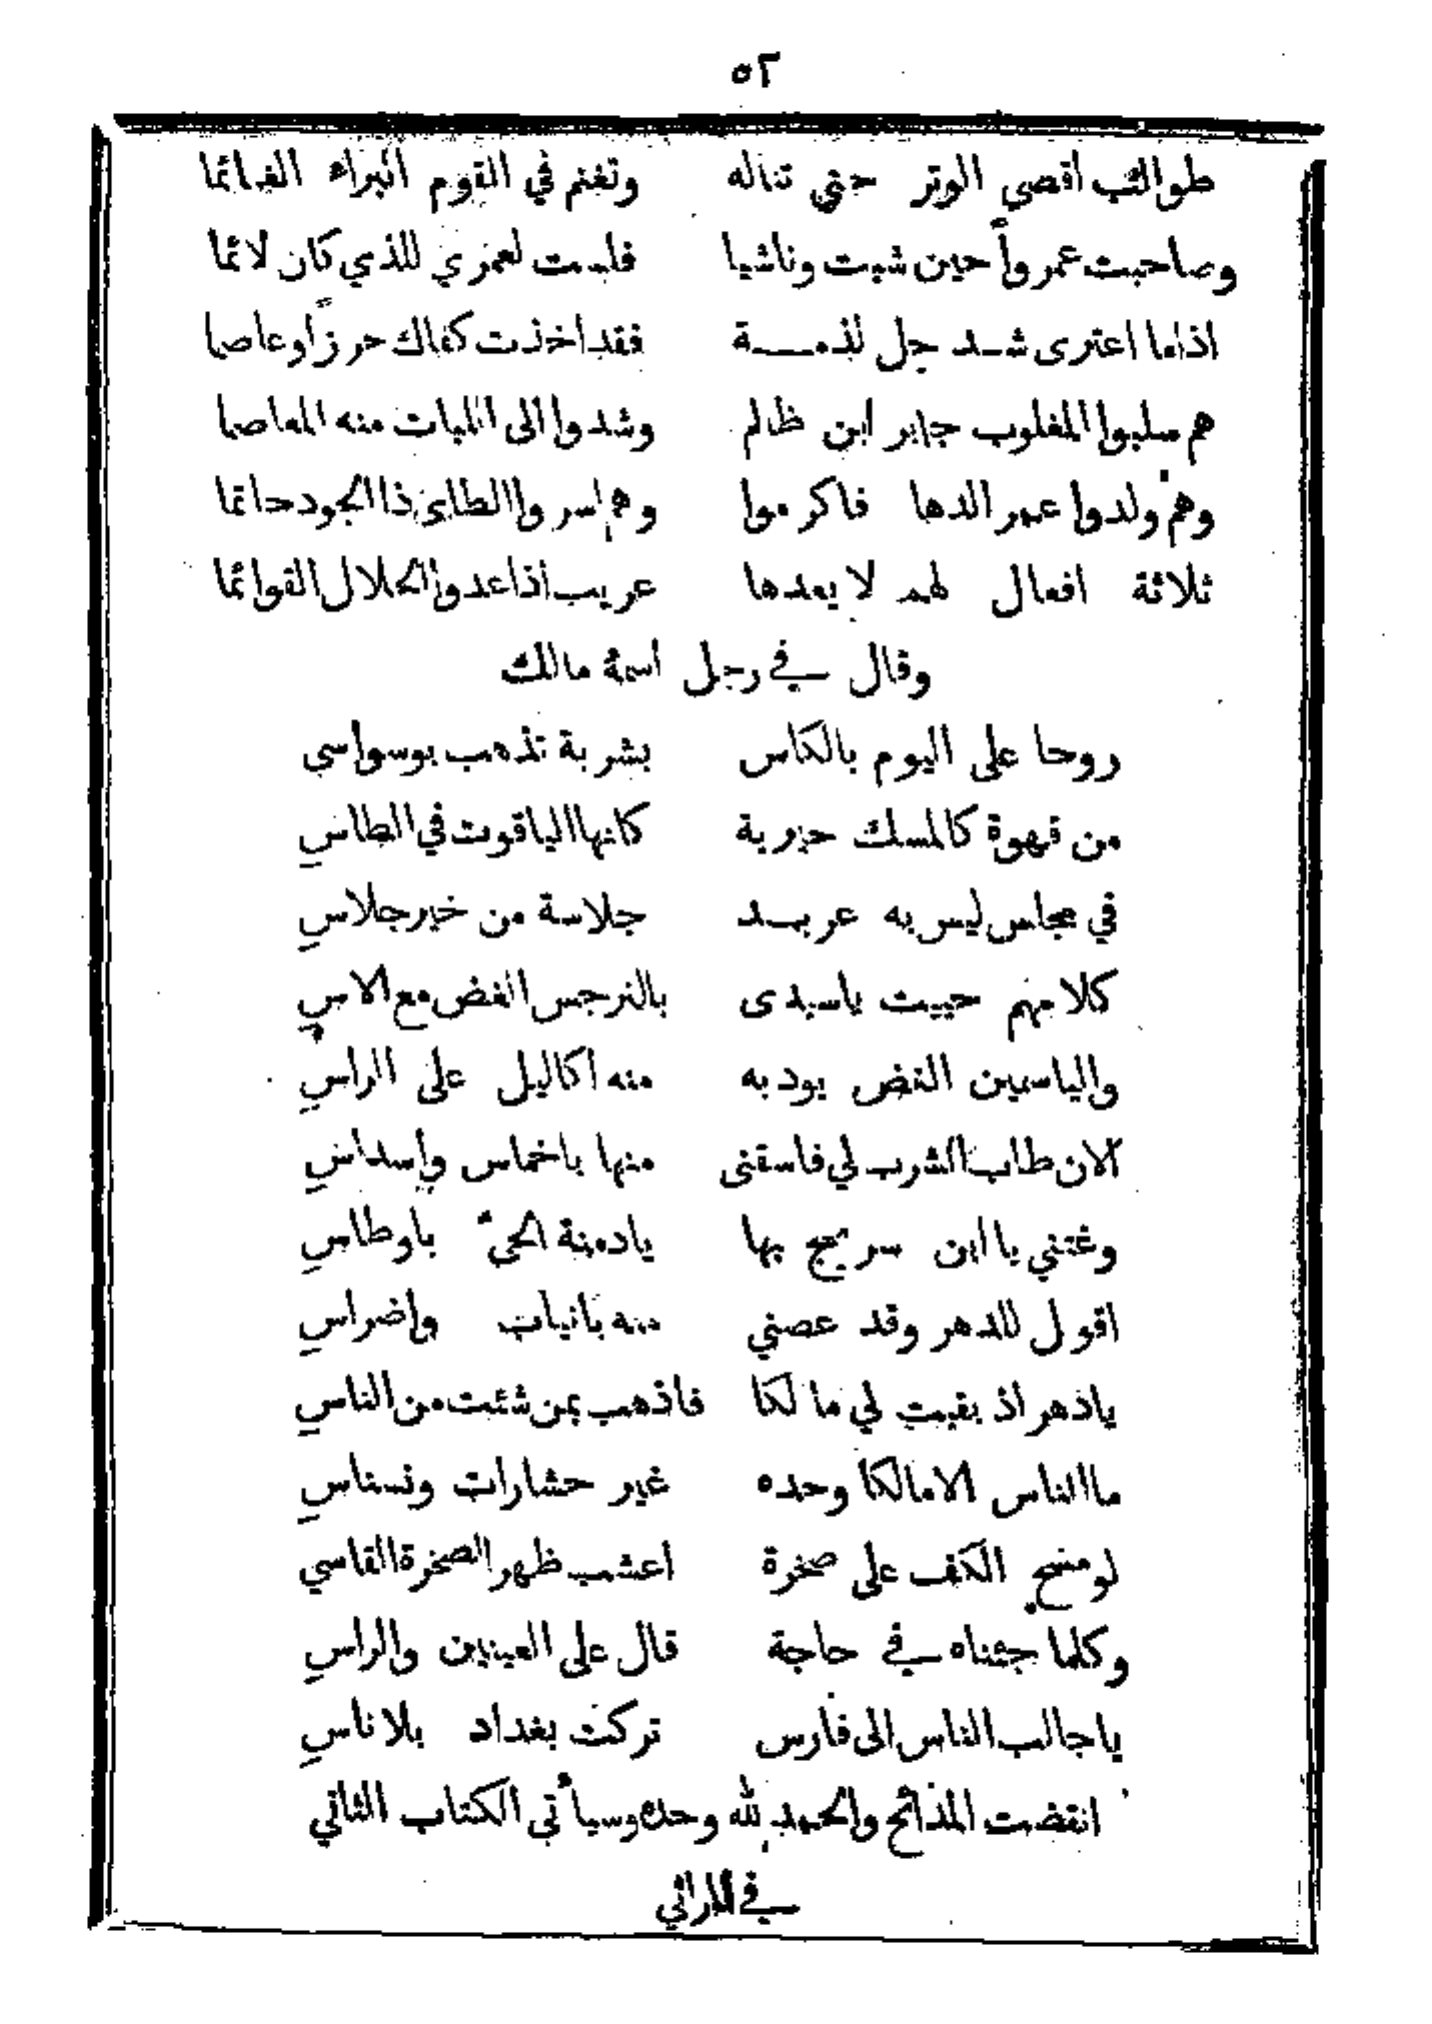 ٥٢
طوالب أقصى الوتر حتى تناله وتغنم في القوم البراء الغنائما
وصاحبت عمرواً حين شبت وناشيا فلست لعمري للذي كان لائما
اذاما اعترى شد جل لذمة فقد اخذت كفاك حرزاً وعاصما
هم سلبوا المغلوب جابر ابن ظالم وشدوا الى اللبات منه المعاصما
وهم ولدوا عمر الدها فاكرموا وهم اسروا الطائي ذا الجود حاتما
ثلاثة افعال لهم لا يعدها عريب اذا عدوا الخلال القوائما
وقال في رجل اسمهُ مالك
روحا على اليوم بالكاس بشربة تذهب بوسواسي
من قهوة كالمسك حيرية كانها الياقوت في الطاسِ
في مجلس ليس به عربد جلاسة من خير جلاسِ
كلامهم حييت ياسيدى بالنرجس الغض مع الاسِ
والياسمين الغض يودبه منه اكاليل على الراسِ
الان طاب الشرب لي فاسقنى منها باخماس وأسداسِ
وغنني يا ابن سريج بها يادمنة الحيّ باوطاسِ
اقول للدهر وقد عضني منه بانياب واضراسِ
يادهر اذ بقيت لي مالكا فاذهب بمن شئت من الناسِ
ما الناس الا مالكا وحده غير حشارات ونسناسِ
لو مسح الكف على صخرة اعشب ظهر الصخرة القاسي
وكلما جئناه في حاجة قال على العينين والراسِ
ياجالب الناس الى فارس تركت بغداد بلا ناسِ
انقضت المدائح والحمد لله وحده وسيأتي الكتاب الثاني
في المراثي